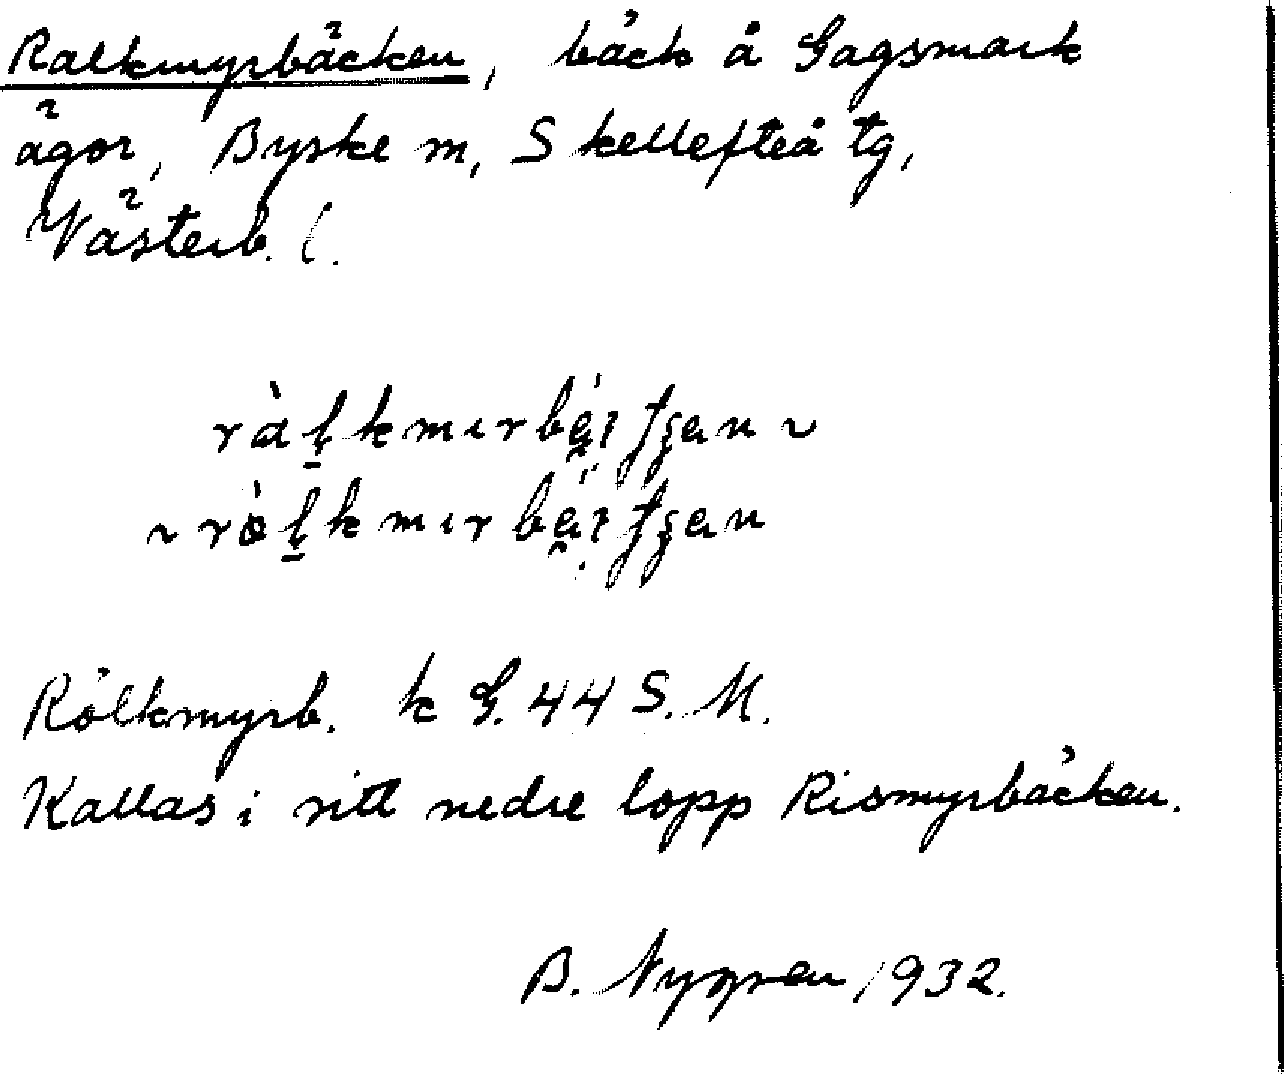 Ralkmyrbäcken, bäck å Gagsmark
ägor, Byske sn, Skellefteå tg,
Västerb. l.
ràḷkmɩrbä́ɩtʃen ~
~ ròḷkmɩrbä́ɩtʃen
Rölkmyrb. k G. 44 S. M.
Kallas i sitt nedre lopp Rismyrbäcken.
B. Nygren 1932.